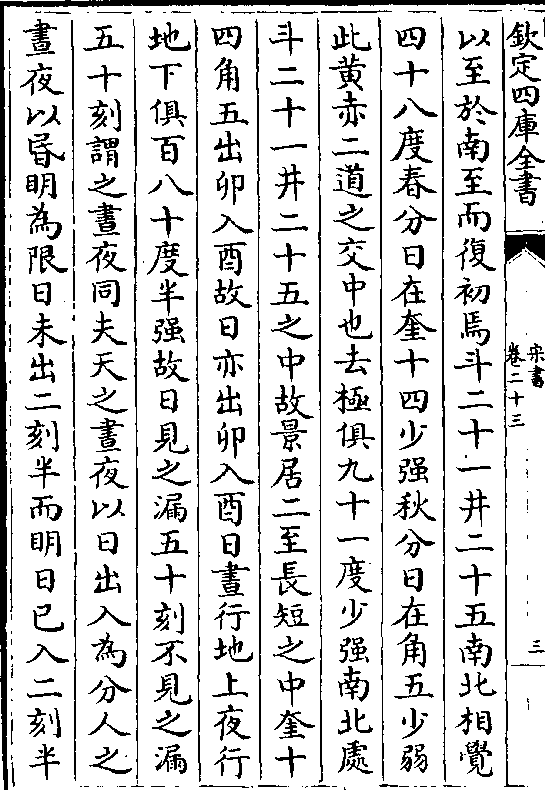 欽定四庫全書
宋書
卷二十三
三
以至於南至而復初焉斗二十一井二十五南北相覺
四十八度春分日在奎十四少强秋分日在角五少弱
此黄赤二道之交中也去極俱九十一度少强南北處
斗二十一井二十五之中故景居二至長短之中奎十
四角五出卯入酉故日亦出卯入酉日晝行地上夜行
地下俱百八十度半强故日見之漏五十刻不見之漏
五十刻謂之晝夜同夫天之晝夜以日出入為分人之
晝夜以昬明為限日未出二刻半而明日已入二刻半